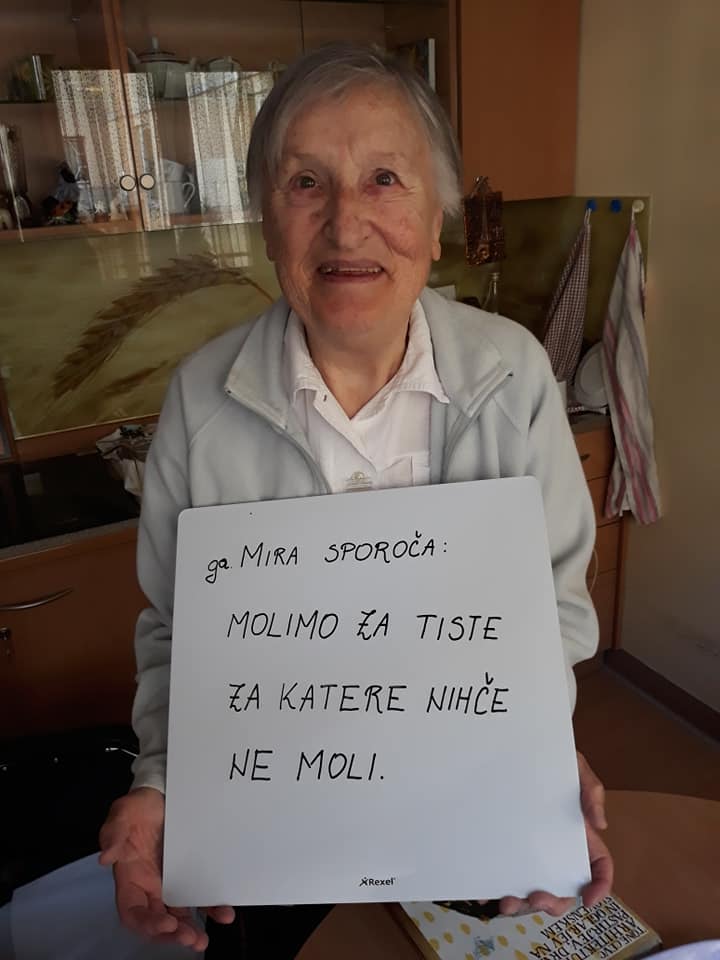 ga. MIRA SPOROČA:
MOLIMO ZA TISTE
ZA KATERE NIHČE
NE MOLI.
Rexel